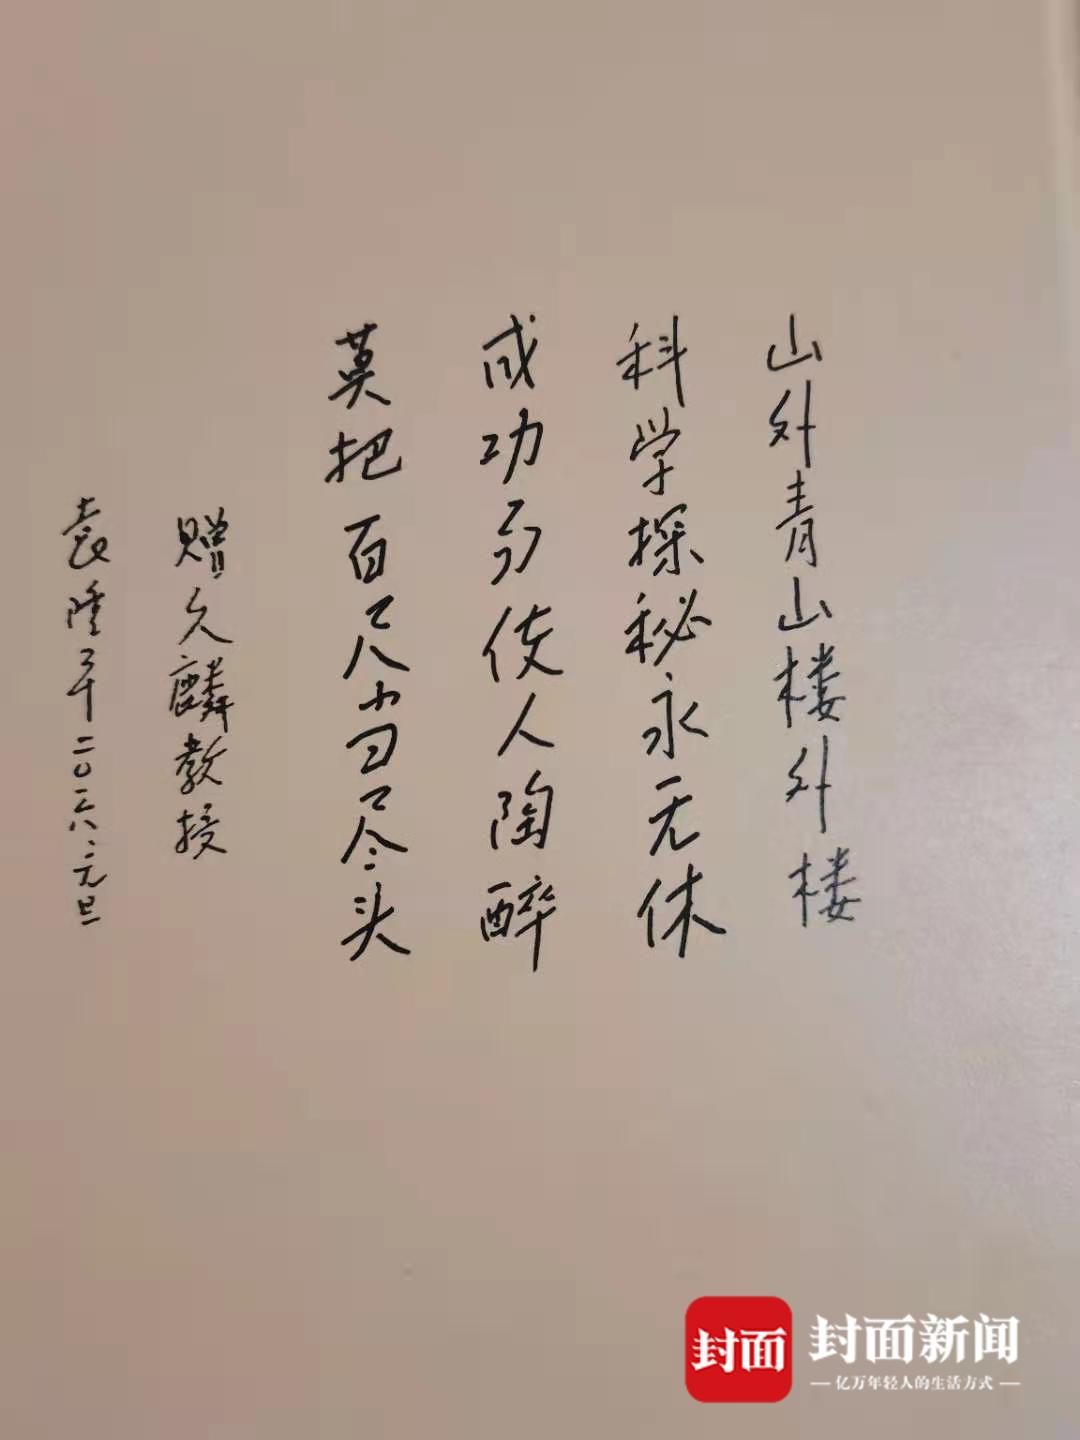 山外青山楼外楼
科学探秘永无休
成功易使人陶醉
莫把百尺当尽头
赠久麟教授
袁隆平 二〇一六、元旦
封面
封面新闻
亿万年轻人的生活方式